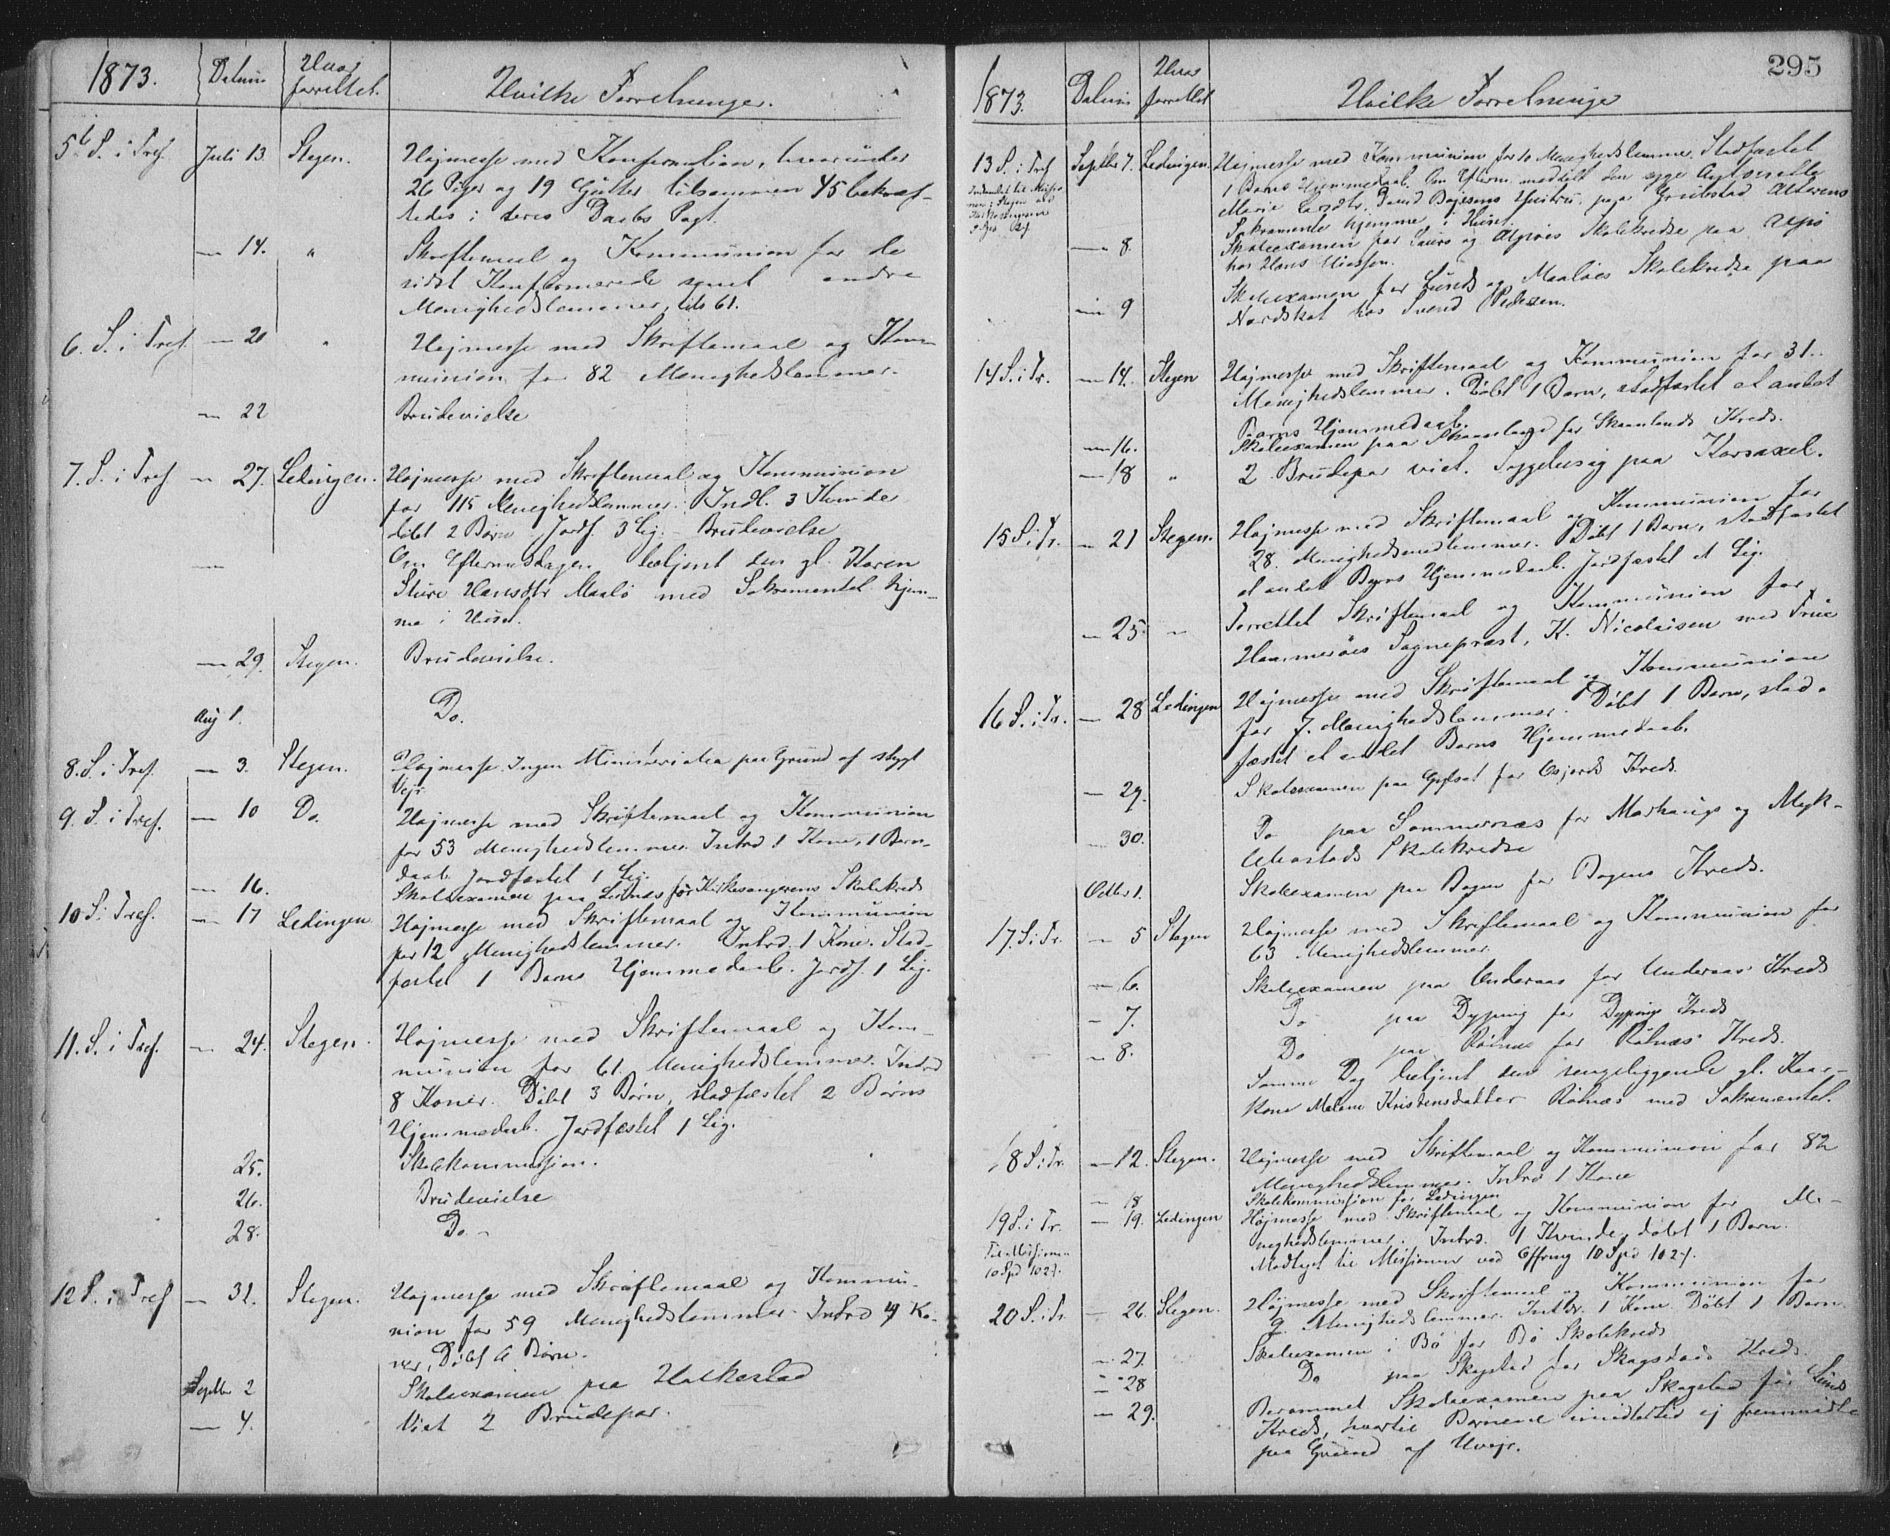 1873. Datum Hvor forrettet. Hvilke Forretninger.
5te S. i Tref. Juli 13. Stegen. Højmesse med Konfirmation, hvorunder
26 Piger og 19 Gutter tilsammen 45 bekræf-
tedes i deres Daabs Pagt.
— 14. " Skriftemaal og Kommunion for de
sidst Konfirmerede samt andre
Menighedslemmer, tils 61.
6. S. i Tref. — 20 " Højmesse med Skriftemaal og Kom-
munion for 82 Menighedslemmer.
— 22 Brudevielse
7. S. i Tref — 27. Lødingen. Højmesse med Skriftemaal og Kommunion
for 115 Menighedslemmer. Indl. 3 Kvinder
døbt 2 Børn Jordf. 3 Lig. – Brudevielse
Om Eftermiddagen betjent den gl. Karen
Sture Hansdtr Maalø med Sakramentet hjem-
me i Huset.
— 29. Stegen. Brudevielse.
Aug 1. Do.
8. S. i Tref. — 3. Stegen. Højmesse. Ingen Ministerialia paa Grund af stygt
Vejr.
9. S. i Tref. — 10 Do. Højmesse med Skriftemaal og Kommunion
for 53 Menighedslemmer. Introd 1 Kone, 1 Barn-
daab. Jordfæstet 1 Lig.
— 16. Skoleexamen paa Leines for Kirkesangerens Skolekreds
10 S. i Tref. — 17 Ledingen Højmesse med Skriftemaal og Kommunion
for 12 Menighedslemmer. Introd. 1 Kone. Stad-
fæstet 1 Barns Hjemmedaab. Jordf. 1 Lig.
11. S. i Tref. — 24. Stegen. Højmesse med Skriftemaal og Kom-
munion for 61 Menighedslemmer. Introd
8 Koner. Døbt 3 Børn, stadfæstet 2 Børns
Hjemmedaab. Jordfæstet 1 Lig.
25. Skolekommission.
26. Brudevielse
28. Do –
12 S. i Tref — 31. Stegen. Højmesse med Skriftemaal og Kommu-
nion for 59 Menighedslemmer. Introd 4 Ko-
ner, Døbt 6 Børn.
Septbr 2 Skoleexamen paa Holkestad
— 4. Viet 2 Brudepar.
295
1873. Datum Hvor forrettet Hvilke Forretninger
13 S. i Tref Septbr 7. Ledingen. Højmesse med Kommunion for 10 Menighedslemmer. Stadfæstet
1 Barns Hjemmedaab. Om Efterm. meddelt den syge
Marie Larsdtr, Bojesens Hustru, paa Grøtstad Alterens
Sakramente hjemme i Huset.
— 8. Skoleexamen for og Skolekreds paa
hos Hans
— 9 Skoleexamen for Lunds og Maaløes Skolekredse paa
Nordskot hos Svend Pedersen.
14 S. i Tr. — 14. Stegen Højmesse med Skriftemaal og Kommunion for 31
Menighedslemmer. Døbt 1 Barn, stadfæstet et andet
Barns Hjemmedaab.
— 16. Skoleexamen paa Skaanland for Skaanlands Kreds.
— 18 " 2 Brudepar viet. Sygebesøg paa Korsaxel.
15 S. i Tr. — 21 Stegen. Højmesse med Skriftemaal og Kommunion for
28. Menighedsmedlemmer. Døbt 1 Barn, stadfæstet
et andet Barns Hjemmedaab. Jordfæstet et Lig.
— 25. " Forrettet Skriftemaal og Kommunion for
Hammerøes Sognepræst, K. Nicolaisen med Frue
16 S. i Tr. — 28 Ledingen Højmesse med Skriftemaal og Kommunion
for 7. Menighedslemmer. Døbt 1 Barn, stad-
fæstet et andet Barns Hjemmedaab.
— 29. Skoleexamen paa for Kreds.
— 30. Do paa Sommernæs for Morhaugs og Myk-
lebostads Skolekredse
Octbr 1. Skoleexamen paa Bogen for Bogens Kreds.
17. S. i Tr. — 5 Stegen Højmesse med Skriftemaal og Kommunion for
63 Menighedslemmer.
— 6. Skoleexamen paa Underaas for Underaas Kreds
— 7. Do paa Dyping for Dypings Kreds
— 8. Do paa Røtnæs for Røtnæs Kreds.
Samme Dag betjent den sengeliggende gl. Kaar-
kone Malene Kristensdatter Røtnæs med Sakramentet.
18 S. i Tr. — 12. Stegen. Højmesse med Skriftemaal og Kommunion for 82
Menighedslemmer. Introd 1 Kone
— 18 Skolekommission for Ledingen
19 S. i Tr. — 19. Ledingen Højmesse med Skriftemaal og Kommunion for Me-
nighedslemmer. Introd. 1 Kvinde, døbt 1 Barn.
Til Missionen
10 Spd 102 s. Modtaget til Missionen ved Offring 10 Spd 102 s.
20 S. i Tr — 26. Stegen. Højmesse med Skriftemaal og Kommunion for
9. Menighedslemmer. Introd. 1 Kone Døbt 1 Barn
— 27. Skoleexamen i Bø for Bø Skolekreds
— 28 Do paa Skagstad for Skagstads Kreds.
— 29. Berammet Skoleexamen paa Skagstad for Lunds
Kreds, hvortil Børnene imidlertid ej fremmødte
paa Grund af Uvejr.